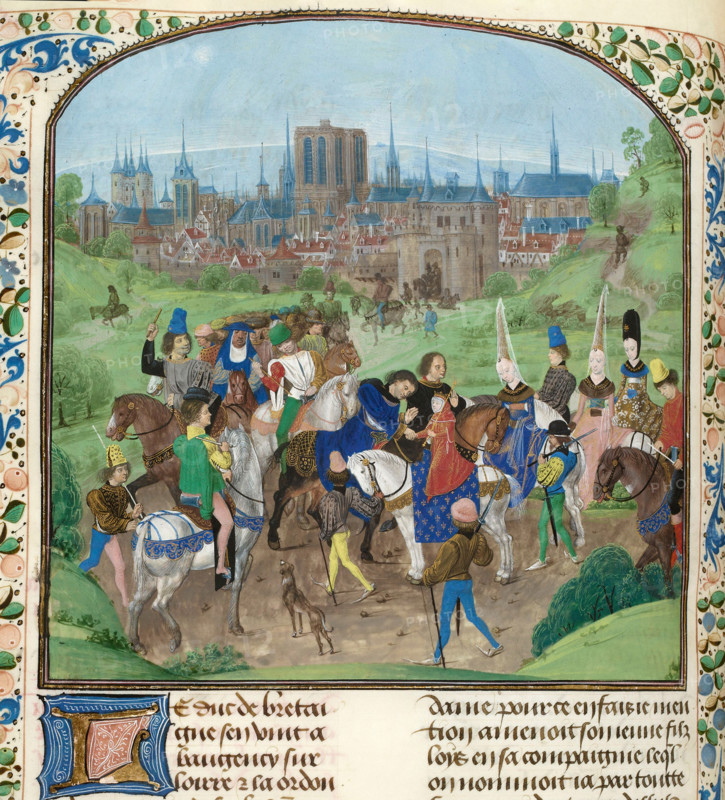 E duc de bretai
gne sen vint a
baugency sur
loirre ⁊ la ordon
dame pour ce en fais ie men
tion amenoit son ieune filz
loys en sa compaignie leql
on nommoit ia par toutte